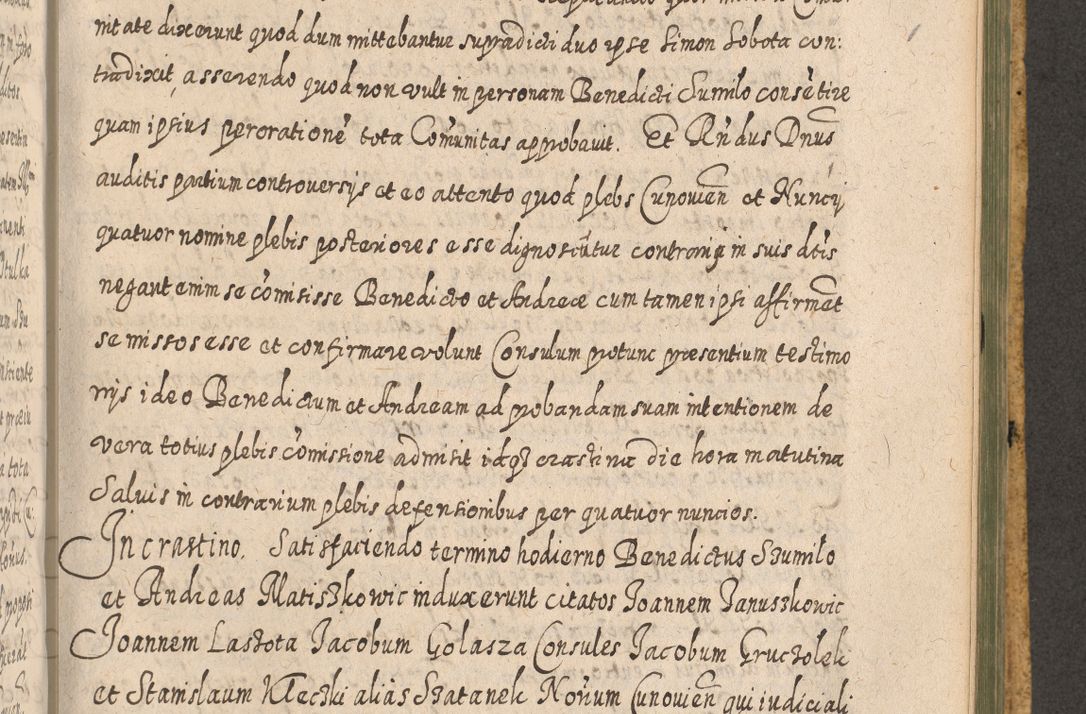 nitate dixerunt quod dum mittebantur supradicti duo ipse Simon Sobota con:
tradixit, asserendo quod non vult in personam Benedicti Sumilo consẽtire
quam ipsius perorationẽ tota Com̃unitas approbavit. Et Rñdus Dnus
auditis partium controversijs et eo attento quod plebs Cunovień et Nuncij
quatuor nomine plebis posteriores esse dignoscũtur contrarij in suis dctis
negant enim se cõmisisse Benedicto et Andreæ cum tamen ipsi affirmẽt
se missos esse et confirmare volunt Consulum protunc presentium testimo
nijs ideo Benedictum et Andream ad probandam suam intentionem de
vera totius plebis cõmissione admisit idq3 crastina die hora matutina
Salvis in contrarium plebis defensionibus per quatuor nuncios.
In crastino. Satisfaciendo termino hodierno Benedictus Szumiło
et Andreas Matiszkowic induxerunt citatos Joannem Januszkowic
Joannem Laszota Jacobum Golasza Consules Jacobum Gruczolek
et Stanislaum Kleczki aliàs Szatanek Novum Cunovień qui iudiciali